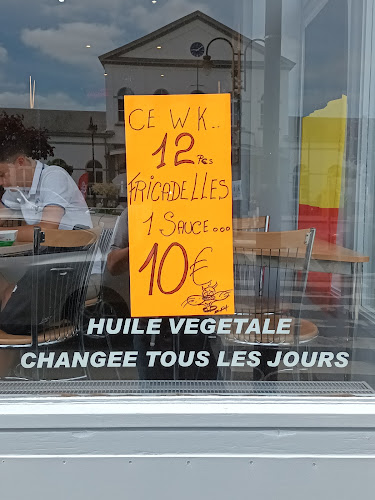 CE WK..
12 Pcs
FRICADELLES
1 SAUCE...
10€
HUILE VEGETALE
CHANGEE TOUS LES JOURS